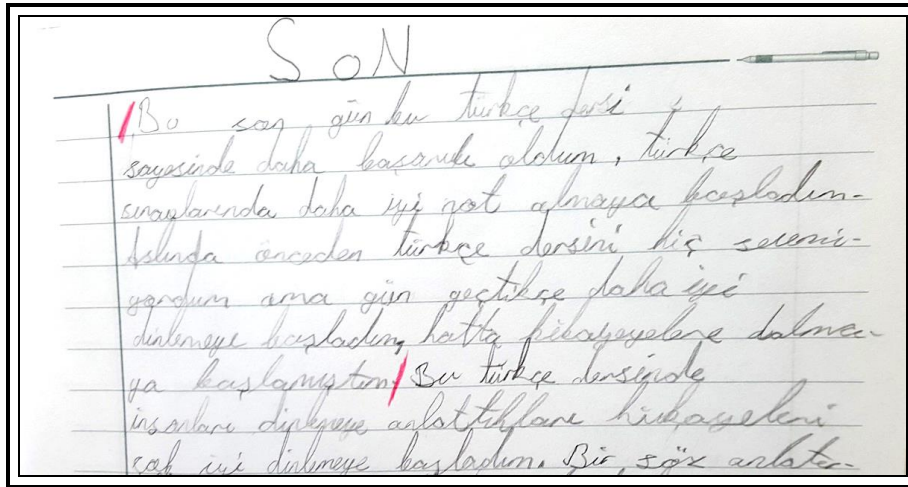 SON
Bu son gün bu türkçe dersi
sayesinde daha başarılı oldum, türkçe
sınavlarında daha iyi not almaya başladım.
Aslında önceden türkçe dersini hiç sevemi-
yordum ama gün geçtikçe daha iyi
dinlemeye başladım, hatta dalma-
ya başlamıştım. Bu türkçe dersinde
insanları dinlemeye anlattıkları hikayeleri
çok iyi dinlemeye başladım. Bir söz